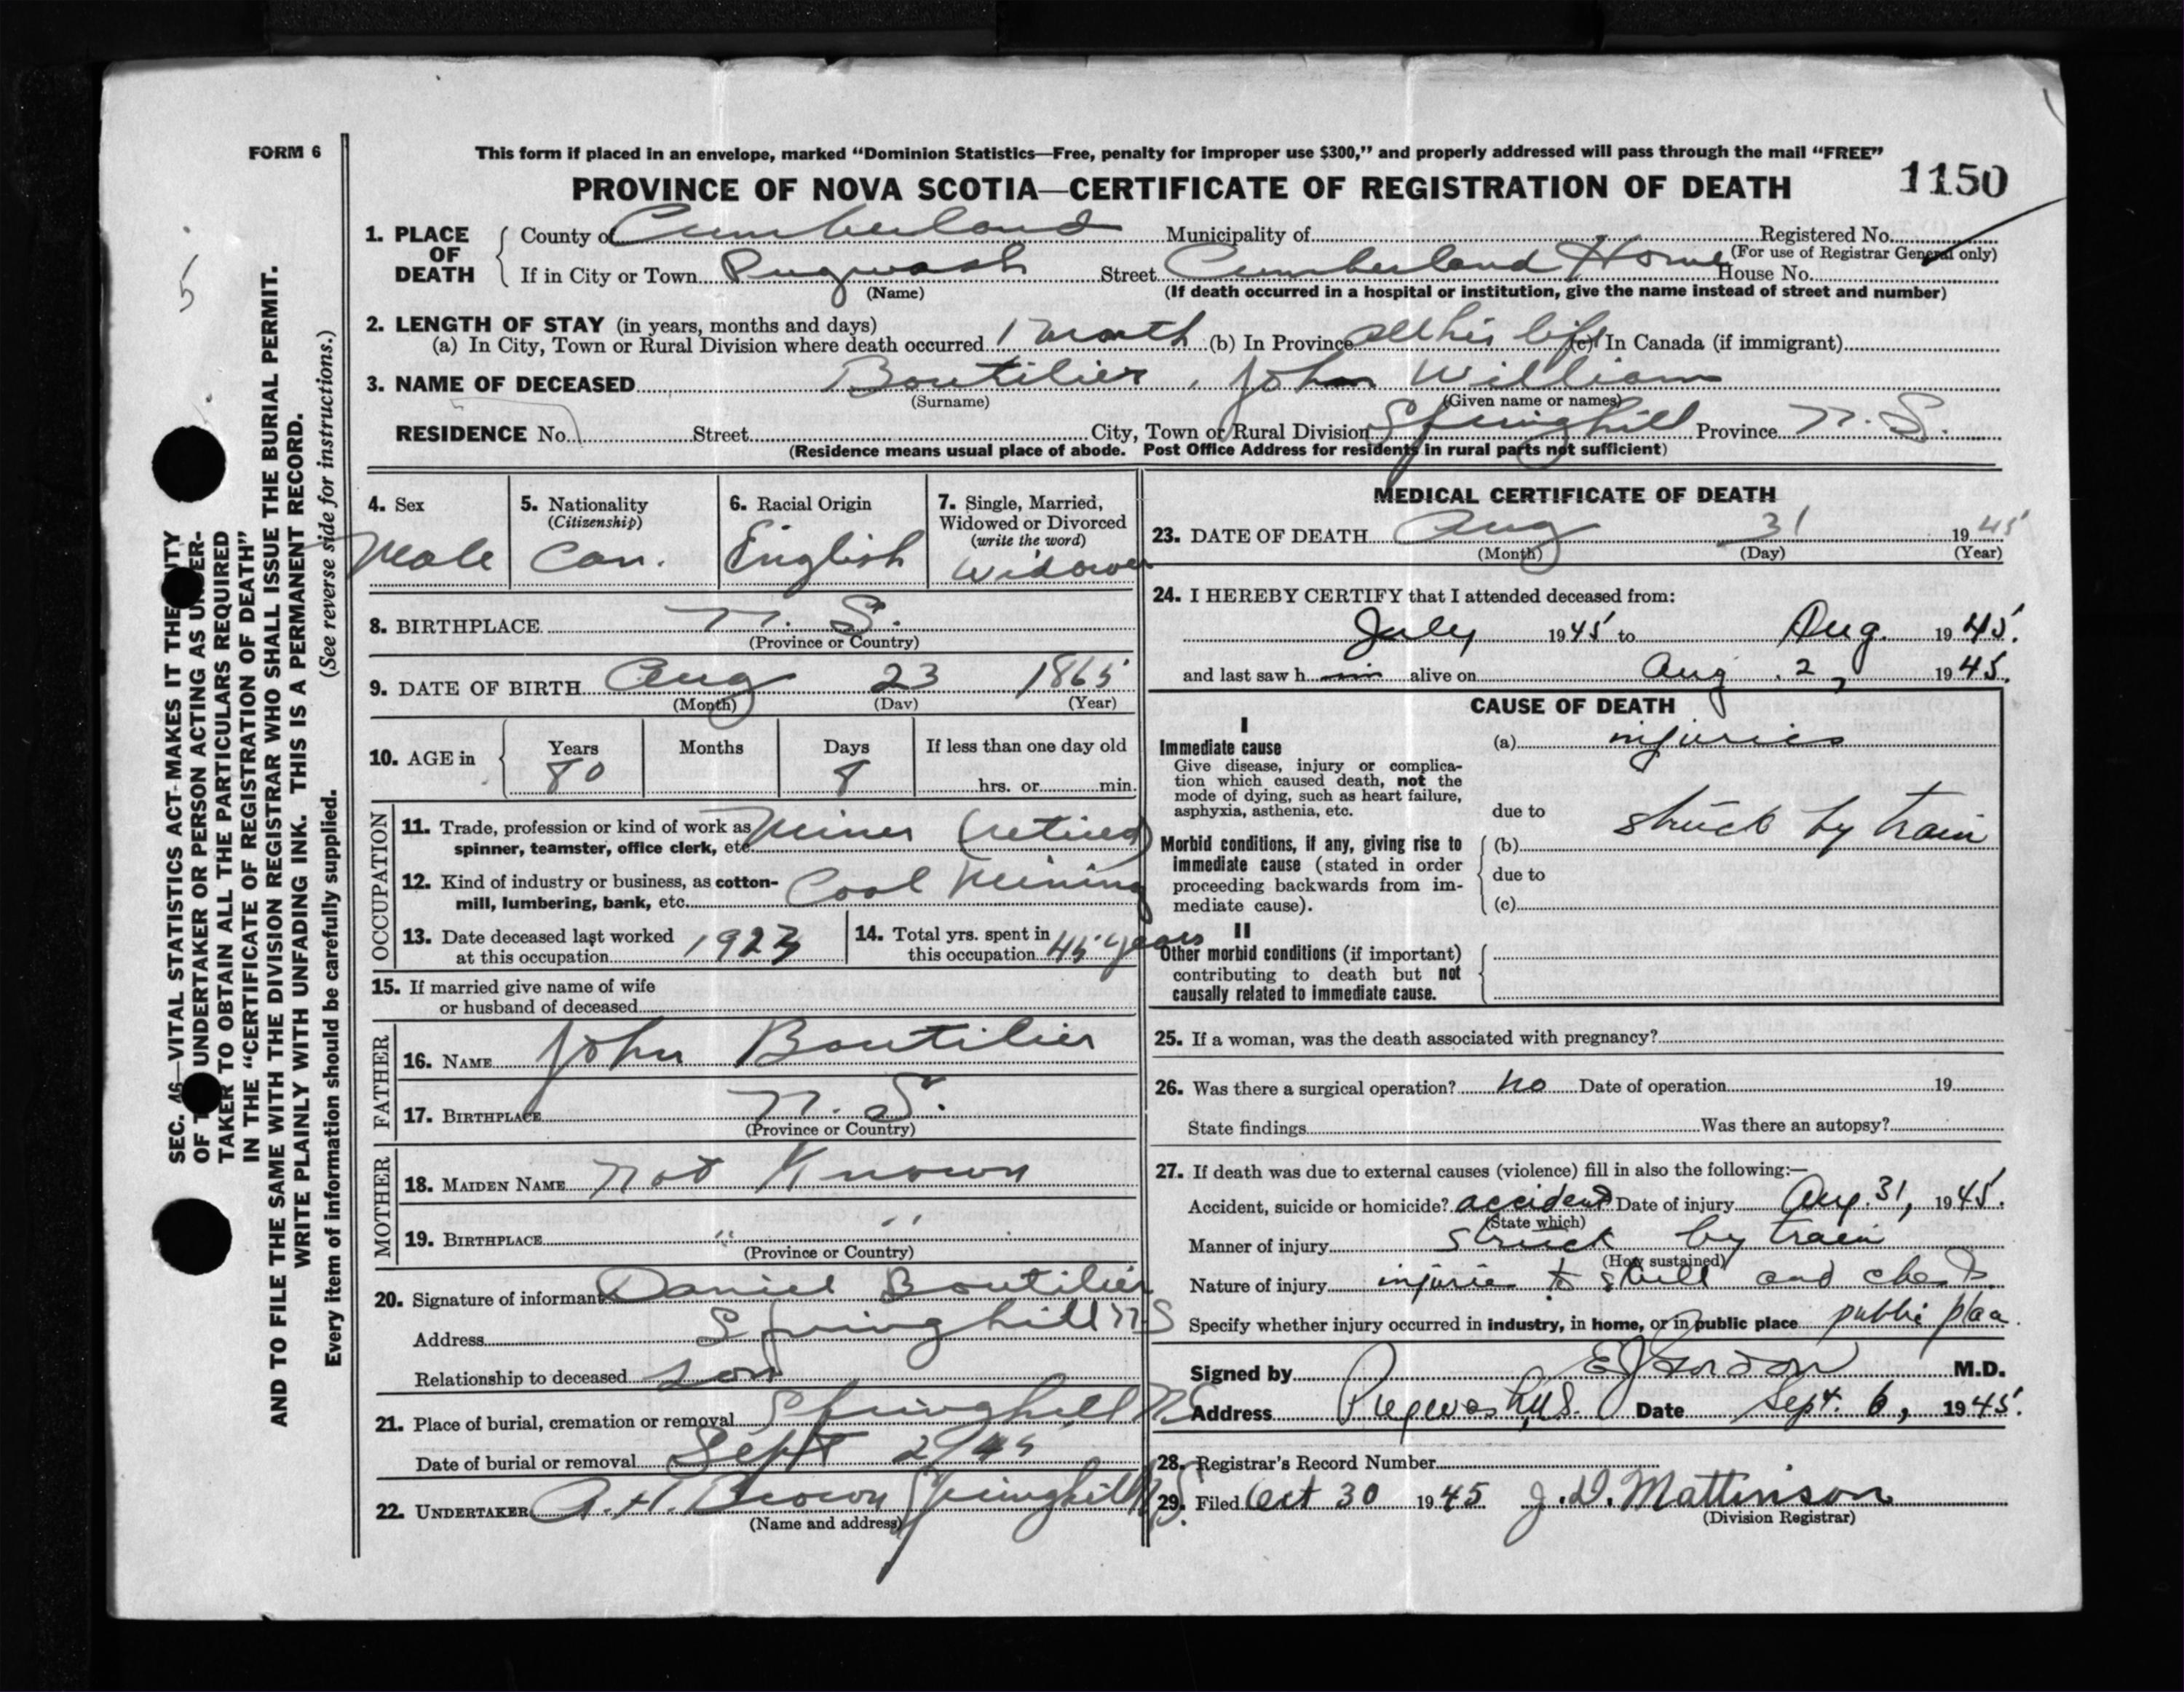 FORM 6
This form if placed in an envelope, marked “Dominion Statistics—Free, penalty for improper use $300,” and properly addressed will pass through the mail “FREE”
PROVINCE OF NOVA SCOTIA—CERTIFICATE OF REGISTRATION OF DEATH
1150
1. PLACE OF DEATH
County of Cumberland Municipality of Registered No.
(For use of Registrar General only)
If in City or Town Pugwash Street Cumberland Home House No.
(Name) (If death occurred in a hospital or institution, give the name instead of street and number)
2. LENGTH OF STAY (in years, months and days)
(a) In City, Town or Rural Division where death occurred 1 month (b) In Province all his life (c) In Canada (if immigrant)
3. NAME OF DECEASED Boutilier, John William
(Surname) (Given name or names)
RESIDENCE No. Street City, Town or Rural Division Springhill Province N.S.
(Residence means usual place of abode. Post Office Address for residents in rural parts not sufficient)
4. Sex
Male
5. Nationality
(Citizenship)
Can.
6. Racial Origin
English
7. Single, Married,
Widowed or Divorced
(write the word)
Widower
8. BIRTHPLACE N. S.
(Province or Country)
9. DATE OF BIRTH Aug 23 1865
(Month) (Day) (Year)
10. AGE in Years Months Days If less than one day old
80 8 hrs. or min.
OCCUPATION
11. Trade, profession or kind of work as Miner (retired)
spinner, teamster, office clerk, etc.
12. Kind of industry or business, as cotton- Coal Mining
mill, lumbering, bank, etc.
13. Date deceased last worked
at this occupation 1923
14. Total yrs. spent in
this occupation 45 years
15. If married give name of wife
or husband of deceased
FATHER
16. NAME John Boutilier
17. BIRTHPLACE N. S.
(Province or Country)
MOTHER
18. MAIDEN NAME Not Known
19. BIRTHPLACE " "
(Province or Country)
20. Signature of informant Daniel Boutilier
Address Springhill N S
Relationship to deceased son
21. Place of burial, cremation or removal Springhill NS
Date of burial or removal Sept 2/45
22. UNDERTAKER A. H. Brown Springhill N.S.
(Name and address)
MEDICAL CERTIFICATE OF DEATH
23. DATE OF DEATH Aug 31 1945
(Month) (Day) (Year)
24. I HEREBY CERTIFY that I attended deceased from:
July 1945 to Aug. 1945.
and last saw h im alive on Aug. 2, 1945.
CAUSE OF DEATH
I
Immediate cause
Give disease, injury or complica-
tion which caused death, not the
mode of dying, such as heart failure,
asphyxia, asthenia, etc.
(a) injuries
due to
struck by train
Morbid conditions, if any, giving rise to
immediate cause (stated in order
proceeding backwards from im-
mediate cause).
(b)
due to
(c)
II
Other morbid conditions (if important)
contributing to death but not
causally related to immediate cause.
25. If a woman, was the death associated with pregnancy?
26. Was there a surgical operation? no Date of operation 19
State findings Was there an autopsy?
27. If death was due to external causes (violence) fill in also the following:—
Accident, suicide or homicide? accident Date of injury Aug. 31, 1945.
(State which)
Manner of injury struck by train
(How sustained)
Nature of injury injuries to skull and chest
Specify whether injury occurred in industry, in home, or in public place public place
Signed by E J Gordon M.D.
Address Pugwash, N.S. Date Sept. 6, 1945.
28. Registrar's Record Number
29. Filed Oct 30 1945 J. D. Mattinson
(Division Registrar)
5
SEC. 46—VITAL STATISTICS ACT-MAKES IT THE DUTY
OF UNDERTAKER OR PERSON ACTING AS UNDER-
TAKER TO OBTAIN ALL THE PARTICULARS REQUIRED
IN THE “CERTIFICATE OF REGISTRATION OF DEATH”
AND TO FILE THE SAME WITH THE DIVISION REGISTRAR WHO SHALL ISSUE THE BURIAL PERMIT.
WRITE PLAINLY WITH UNFADING INK. THIS IS A PERMANENT RECORD.
Every item of information should be carefully supplied. (See reverse side for instructions.)